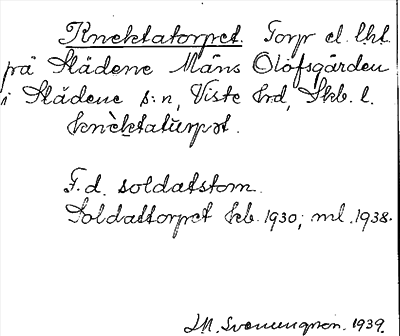 Knektatorpet. Torp el. lht.
på Slädene Måns Olofsgården
i Slädene s:n, Viste hrd, Skb. l.
knèktatŭrpət.
F. d. soldatstom.
Soldattorpet kb. 1930; ml. 1938.
1939.